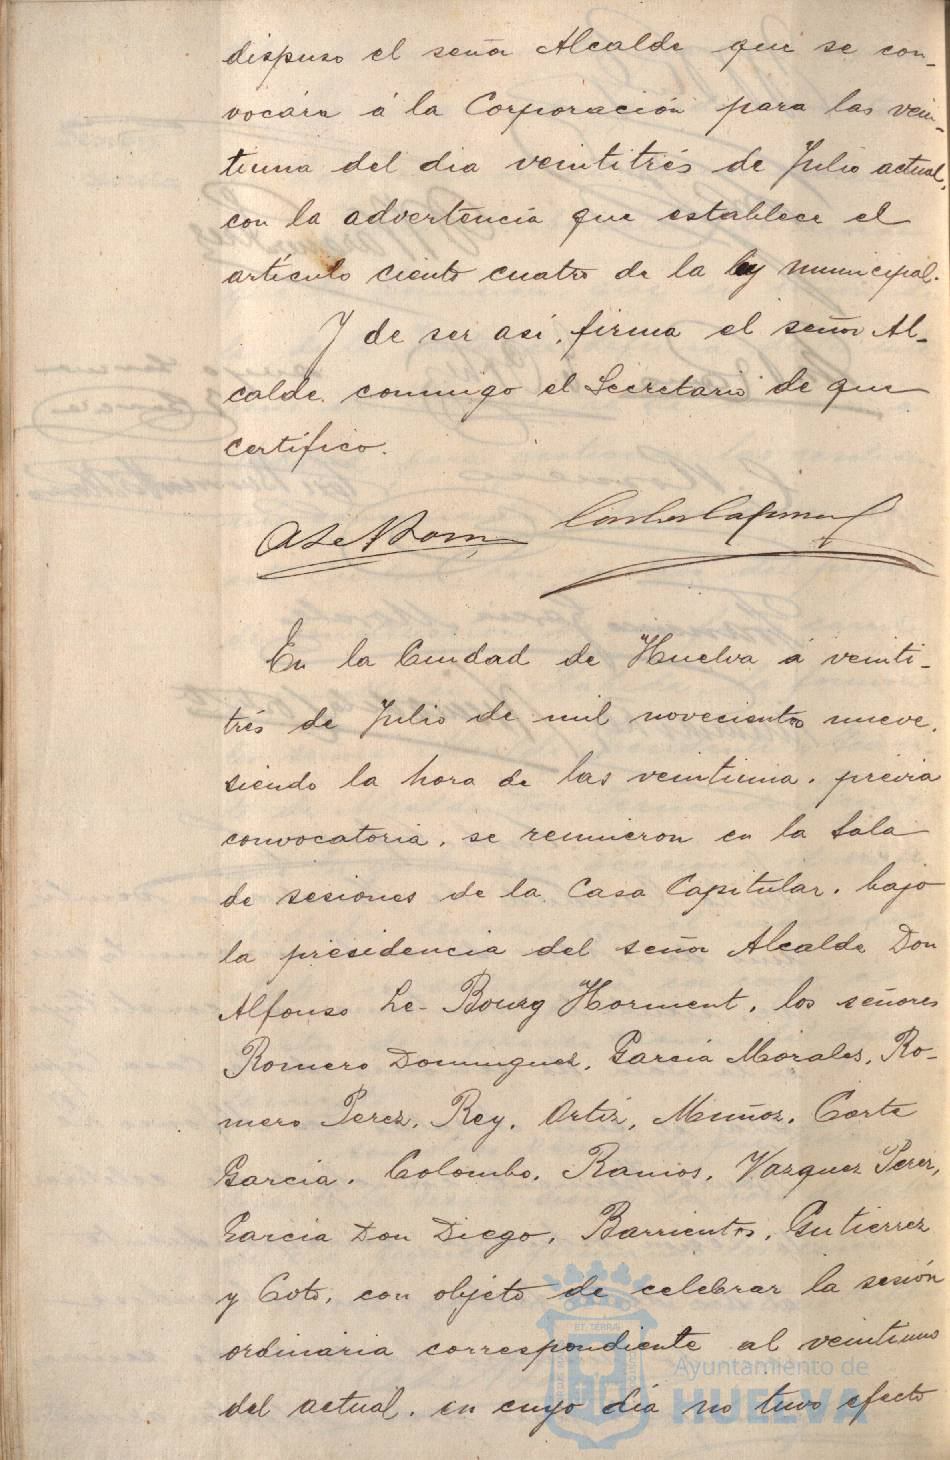 dispuso el señor Alcalde que se con-
vocára á la Corporación para las vein-
tiuna del dia veintitrés de Julio actual,
con la advertencia que establece el
artículo ciento cuatro de la ley municipal.
Y de ser asi, firma el señor Al-
calde conmigo el Secretario de que
certifico.
En la Ciudad de Huelva á veinti-
trés de Julio de mil novecientos nueve,
siendo la hora de las veintiuna, prévia
convocatoria, se reunieron en la Sala
de sesiones de la Casa Capitular, bajo
la presidencia del señor Alcalde Don
Alfonso Le-Bourg Horment, los señores
Romero Dominguez, García Morales, Ro-
mero Perez, Rey, Ortiz, Muñoz, Corte
Garcia, Colombo, Ramos, Vazquez Perez,
García Don Diego, Barrientos, Gutierrez
y Coto, con objeto de celebrar la sesión
ordinaria correspondiente al veintiuno
del actual, en cuyo día no tuvo efecto
Ayuntamiento de
HUELVA